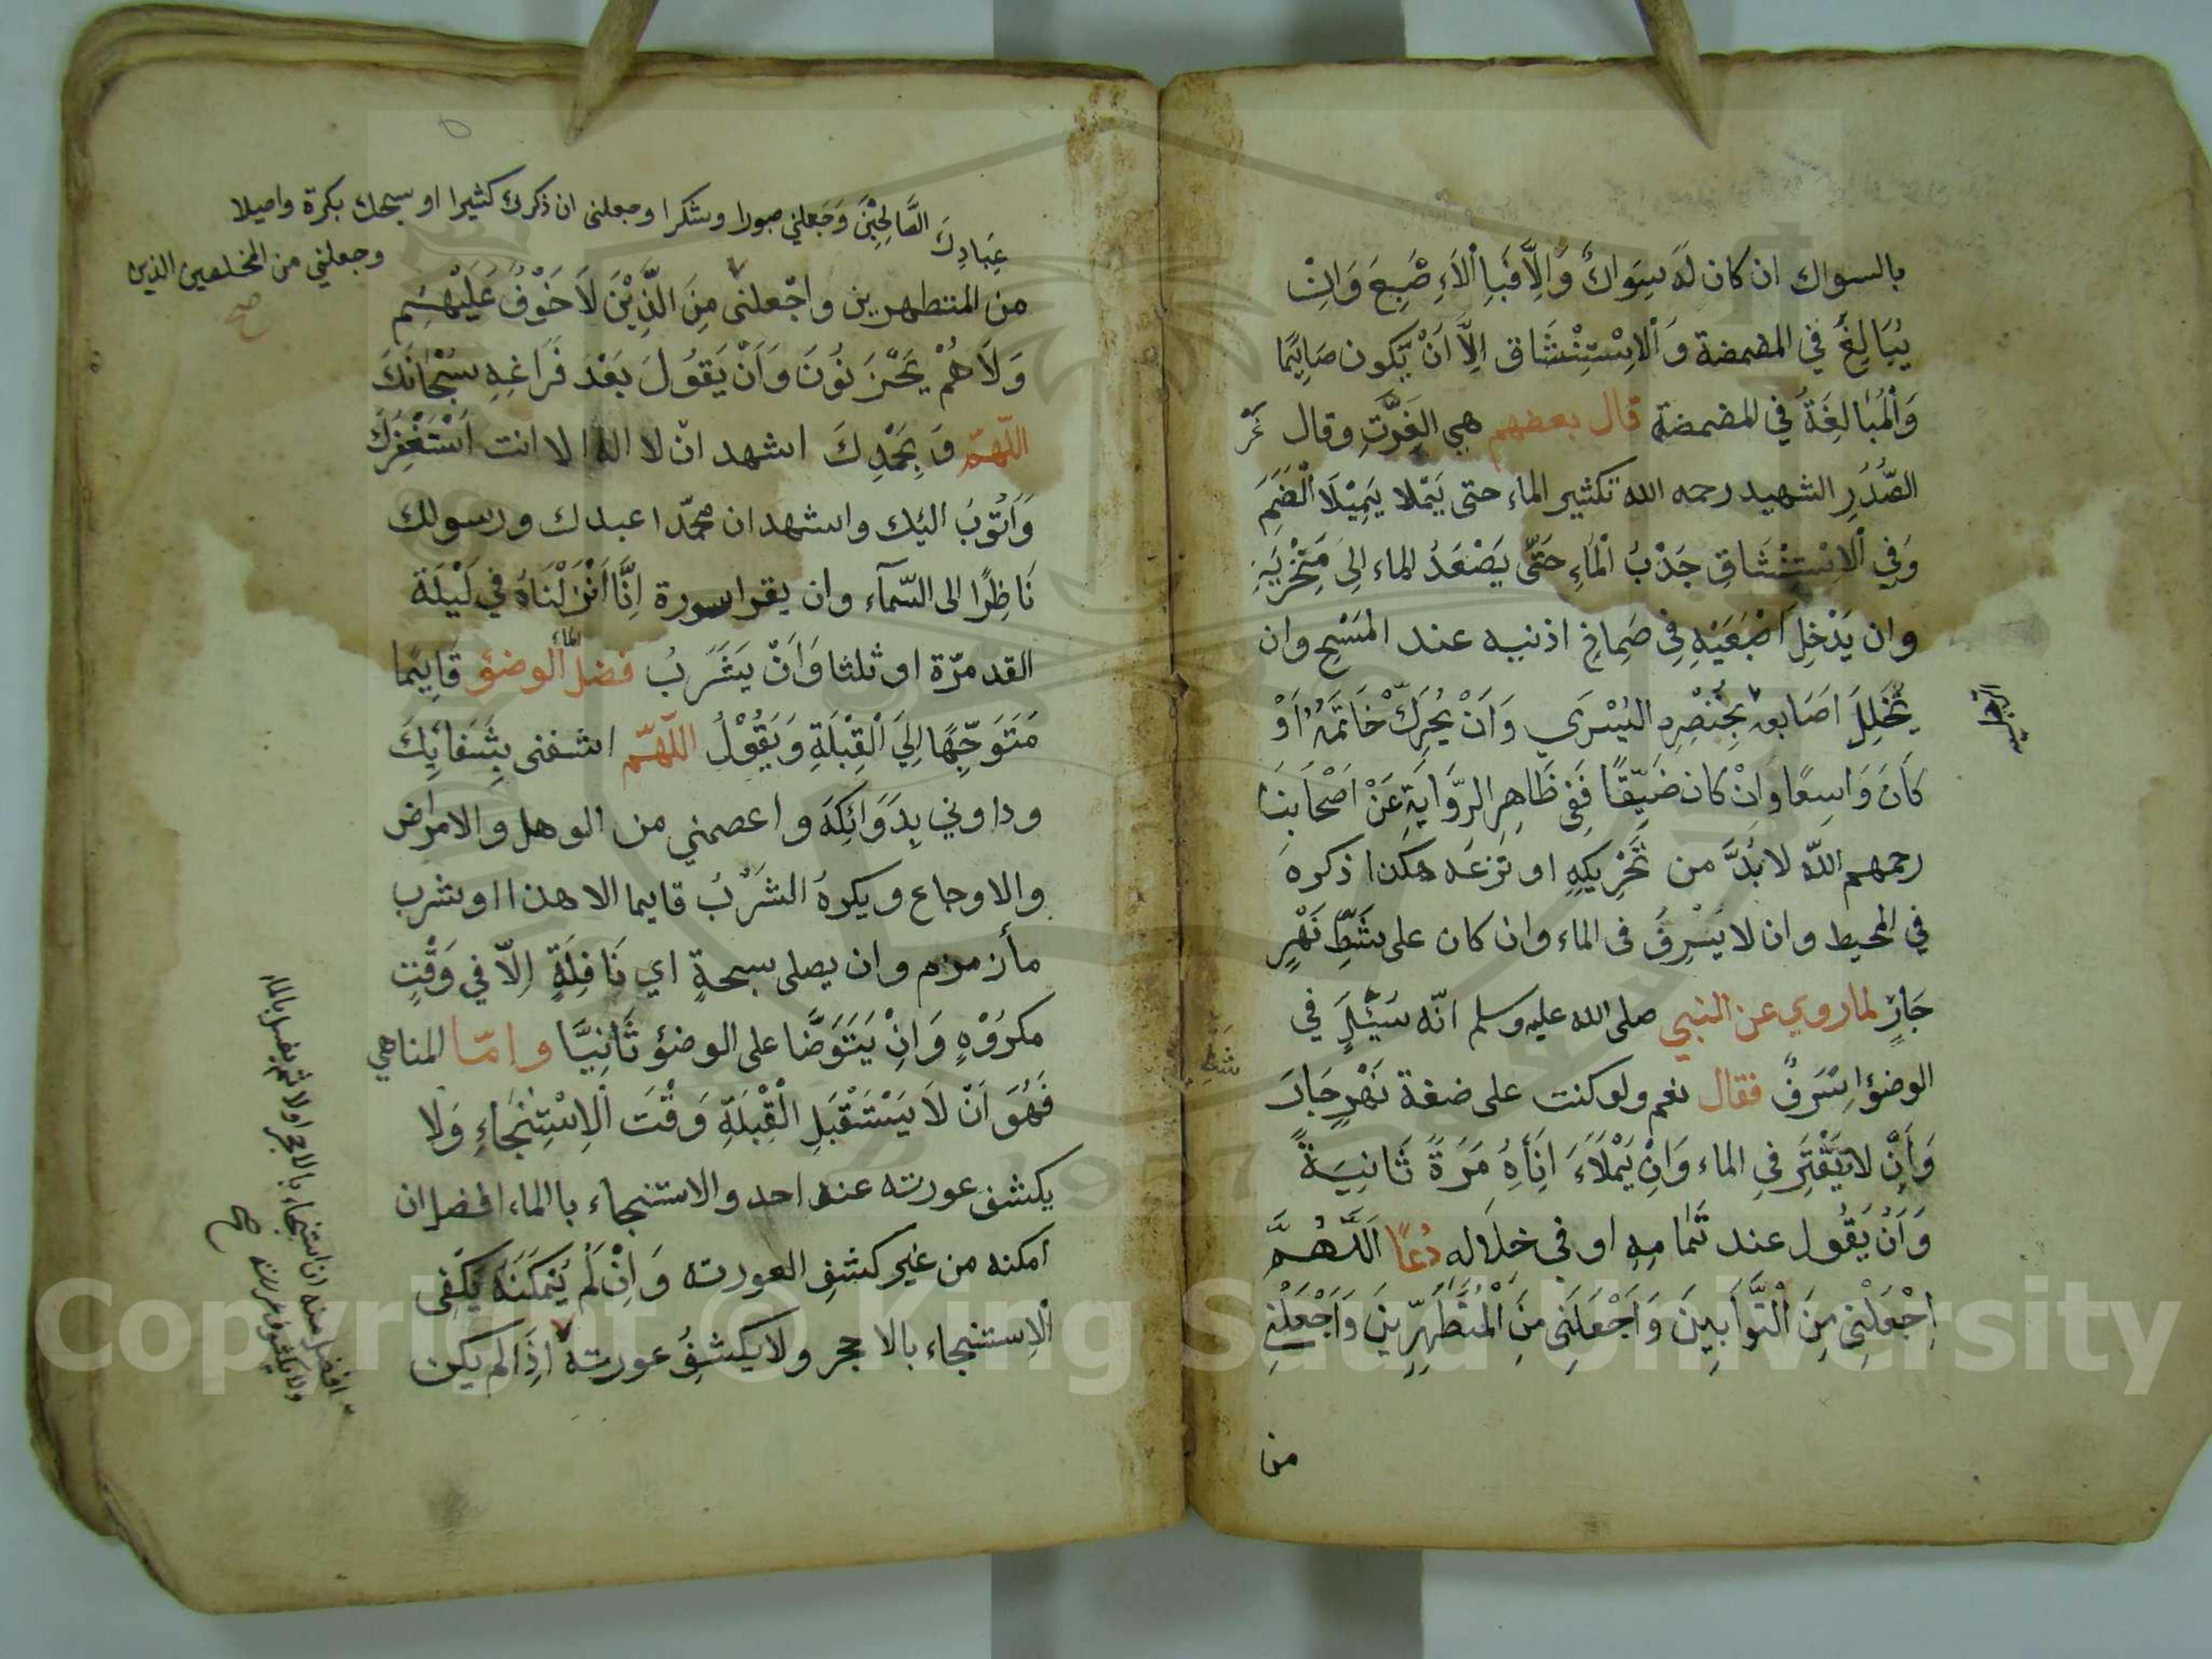 بالسواك ان كان لَهَ سِوَاكٌ وَّالِّا فَبِا الْاَءِ صْبِعَ وَانِْ
يُبَالِغَ في المضمضة وَالْاِسْتِنْشَاق اِلَّا اَنْ يَّكون صَايِمًا
وَالْمُبَالِغَةُ في المضمضة قال بعضهم هي الغَرَّتِ وقال نَجْر
الصّدُرِ الشهيد رحمه الله تكثير الماء حتى يَمْلا يَمِيْلَا الْضَمَِ
وَفِي الْاِسْتِنْشَاقِ جَذْبُ الْمَاءِ حَتّى يَصْعَدُ الماء اِلىَ مَنْخَرَيْهِ
وان يَدْخِلِ اَصْبَعَيْهِ فِي صِمِاخِ اذنيه عند المَسْحِ وان
يُّخَلِلَ اَصَابعه بِخِنْصِرِهِ اليُسْرَي وَاَنْ يُحَرِكَّ خَاتَمَهُ اَوْ
كَانَ وَاسِعًا وَاِنْ كان ضَيّقًا فَفِي ظَاهِرِ الرِّوَايَةِ عَنْ اَصْحَابِنَا
رحمهم اللّه لابُدَّ من تَّحْرِيكِهِ او نَزعَه هكَذا ذكره
في المحيط وان لا يَسْرِفُ فى الماء وان كان على شَطِّ نَهْرٍ
جَارٍ لماروي عن النبي صلى الله عليه وسلم انّه سُئِلٍَ في
شَطِّ
الوضؤ اِسْرَفٌ فقال نعم ولوكنت على ضفة نَهْرٍ جَارَ
وَاَنْ لايَقْتِرَ فيِ الماء وَاَنِْ يَمْلَاءَ اِنَاَهُ مَرَةً ثَانِيَةً
وَاَنْ يَقُول عند تَمامِهِ او في خِلاَله دُعًا اَللَّهُمَّ
اِجْعَلْنِى مِنَ الْتَّوَّابِينَ وَاَجْعَلَنِى مِنَ الْمُتَطَّهِرِّينَ وَاَجْعَلْنِى
من
عِبَادِكَ الصَّالِحِيْنَ وَجَعلني صبورا وشكرا وجعلنى ان ذكرك كثيرا او سبحك بكرة واصيلا
وجعلني من المخلصين الذين
صح
من المتطهرين واجْعلنى مِنَ الَّذِيْنَ لَا خَوْفُ عَلَيْهِمْ
وَلَاهُمْ يَحْزَنُونَ وَاَنْ يَقُولَ بَعْدَ فَرَاغِهِ سُبْحَانَكَ
اللّهمّ وَبِحَمْدِكَ اشهد ان لا اله الا انت اَسْتَغْفِرُكَ
وَاَتُوْبُ اليْك واشهد ان محمّدا عبدك ورسولك
نَاظِرًا الى السّمآء وان يقرا سورة اِنَّا اَنْزَلْنَاهُ في لَيْلَة
القدمرّة او ثلثا وَاَنْ يَشْرَبُ فضل الماء الوضؤ قَايِمًا
مَتَوَجِّهًا اِلَي الْقِبْلَةِ وَيَقُوْلُ اللّهمّ اشفنى بِشَفَايِكَ
وداوني بِدَوَائِكَهَ واعصمني من الوهل والامراض
والاوجاع ويكرهُ الشَرْبُ قايما الا هذا اوشرب
مأزمزم وان يصلى سبحةٍ اي نَافِلَةٍ اِلّا في وَقْتٍ
مكرُوْهٍ وَانِْ يَتَوَضَّا على الوضؤ ثَانِيَّا وامّا المناهي
فَهُوَ اَنْ لَا يَسْتَقْبَلِ الْقِبْلَةِ وَقْتَ الْاِسْتِنْجَاءِ وَلا
يكشف عورته عند احد والاستنجاء باالماء افضل ان
امكنه من غير كشفِ العورته وَاِنْ لَمْ يَمكَنَهُ يَكفِى
الْاِستنجاء بالاحجر ولايكشِفُ عورته اِذَالم يكن
افضل منه ان استنجاء بالاحجر اولا ثم يغسل بالماء
ولايكشف عورته صح
Copyright © King Saud University
1957